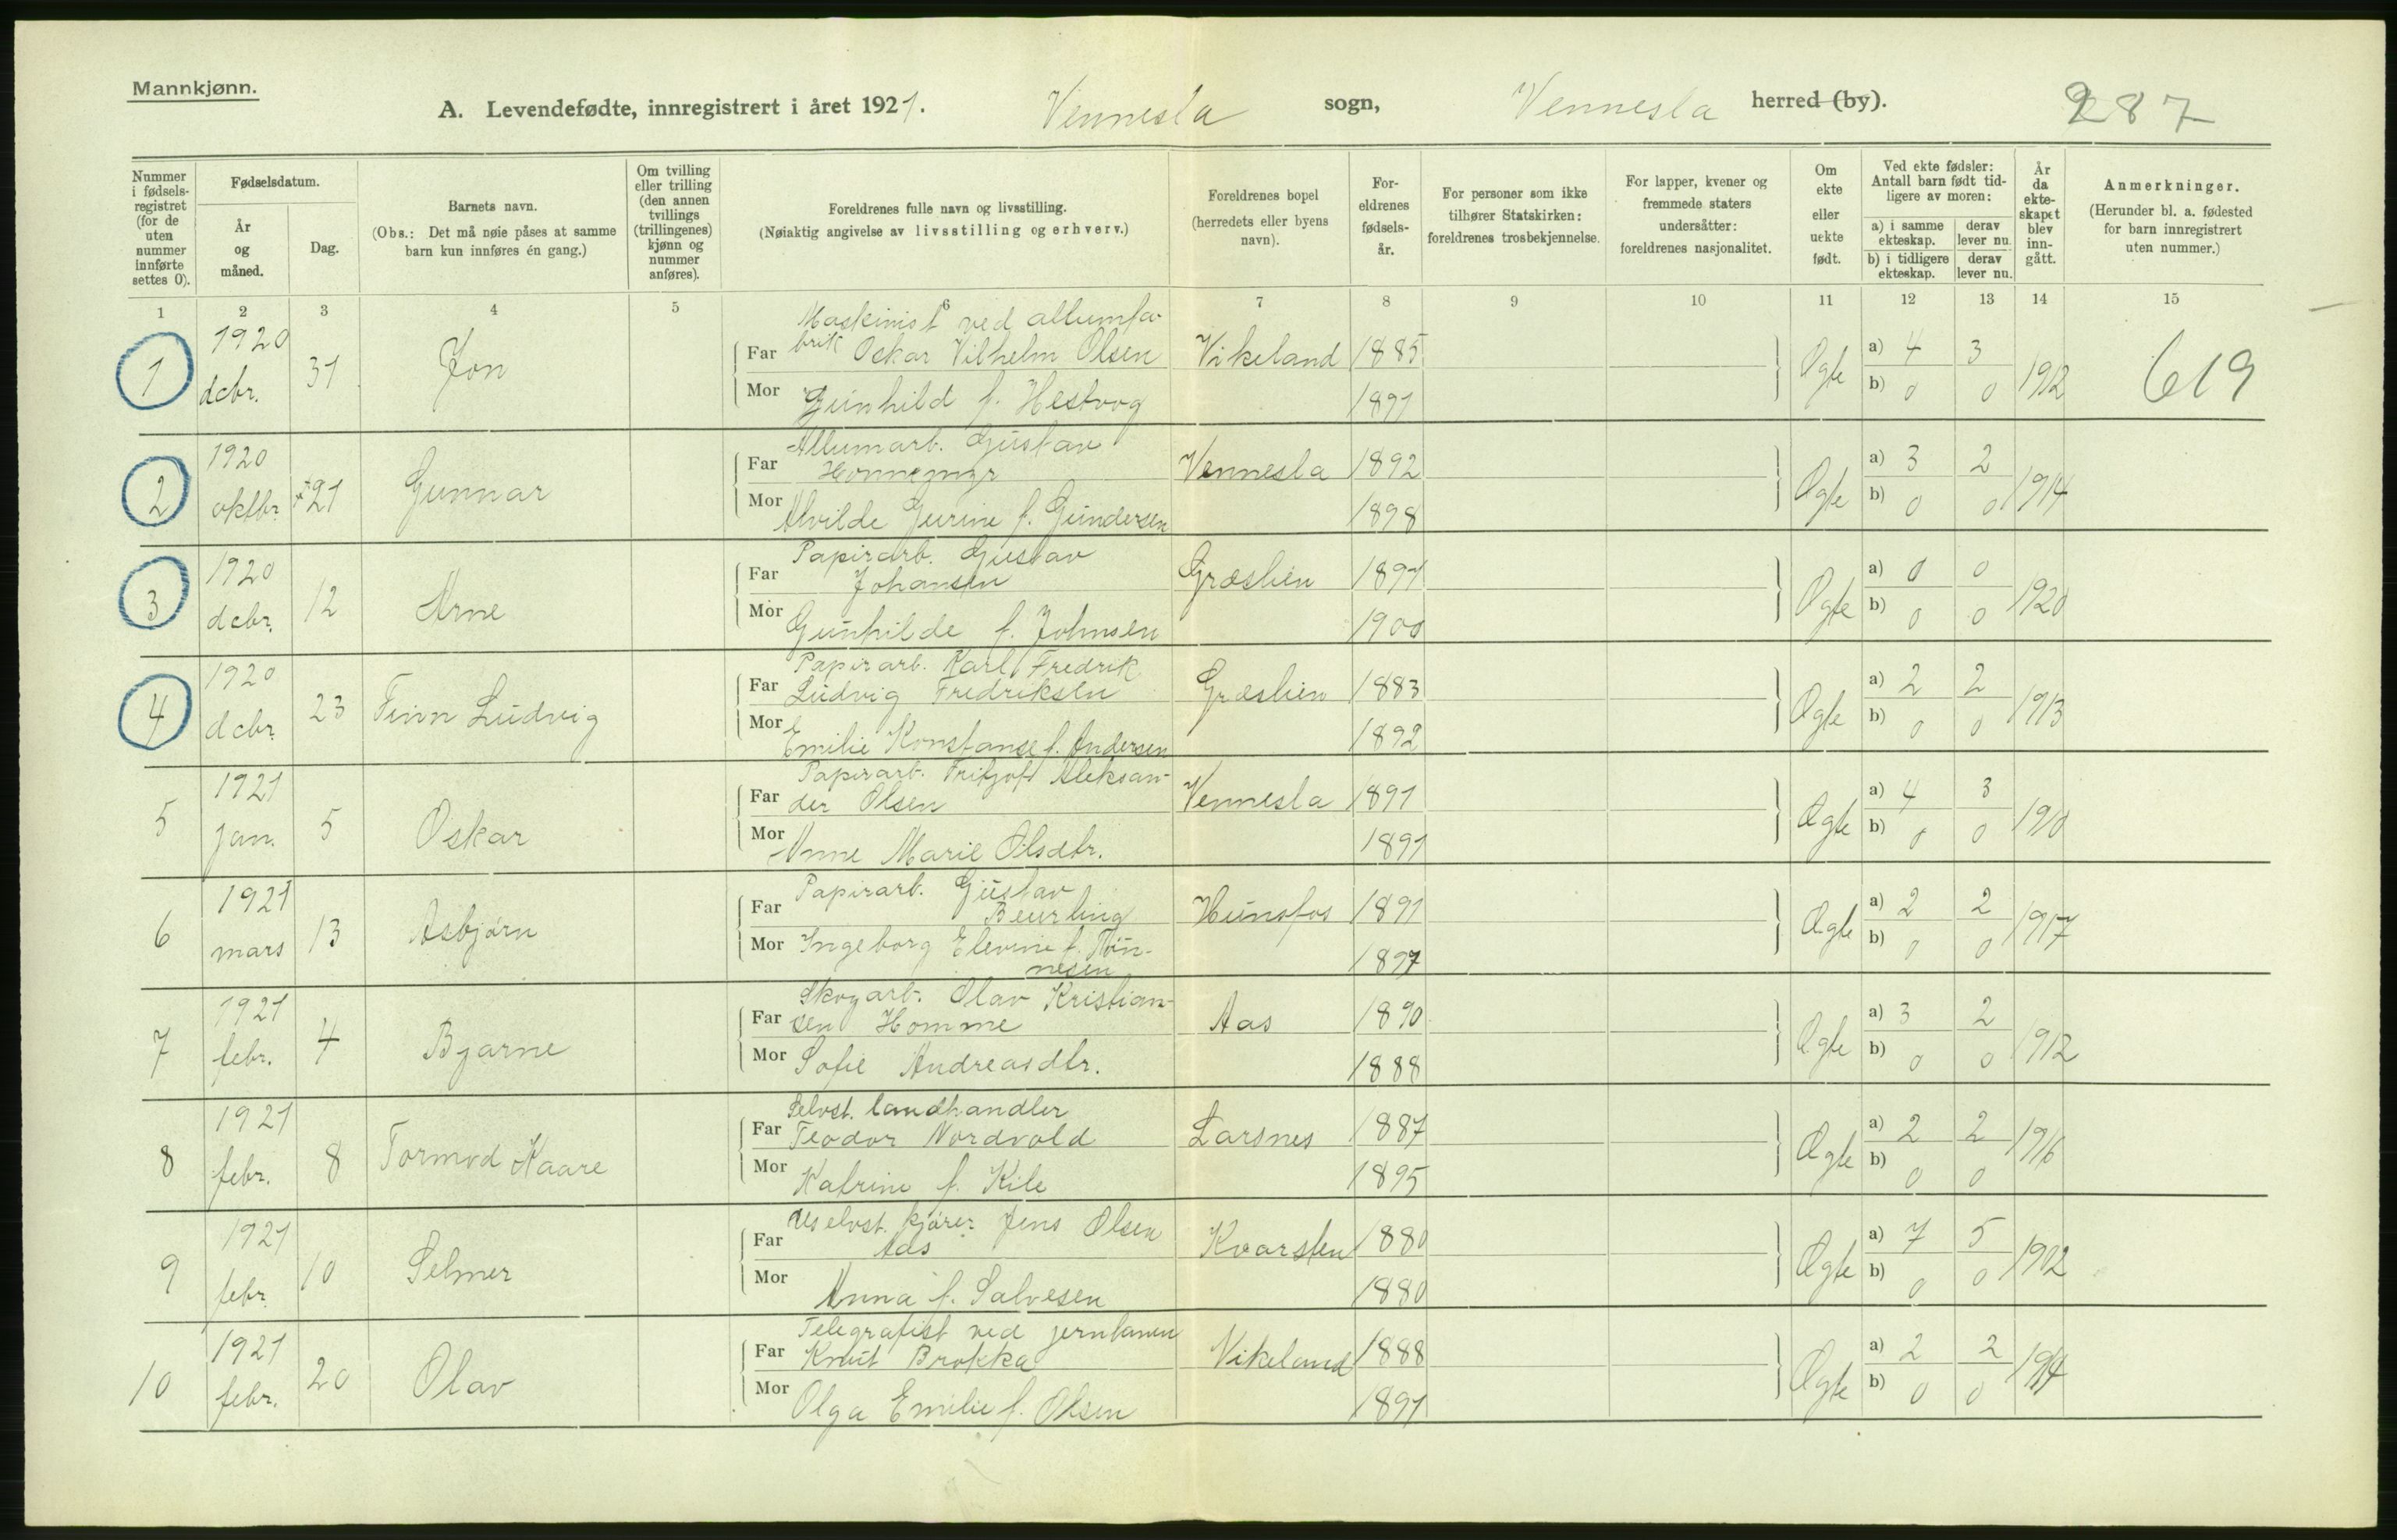 Mannkjønn.
A. Levendefødte, innregistrert i året 1921. Vennesla sogn, Vennesla herred (by). 287
Nummer i fødselsregistret (for de uten nummer innførte settes 0).
Fødselsdatum.
År og måned.
Dag.
Barnets navn.
(Obs.: Det må nøie påses at samme barn kun innføres én gang.)
Om tvilling eller trilling (den annen tvillings (trillingenes) kjønn og nummer anføres).
Foreldrenes fulle navn og livsstilling.
(Nøiaktig angivelse av livsstilling og erhverv.)
Foreldrenes bopel (herredets eller byens navn).
Foreldrenes fødselsår.
For personer som ikke tilhører Statskirken: foreldrenes trosbekjennelse.
For lapper, kvener og fremmede staters undersåtter: foreldrenes nasjonalitet.
Om ekte eller uekte født.
Ved ekte fødsler: Antall barn født tidligere av moren:
a) i samme ekteskap. derav lever nu.
b) i tidligere ekteskap. derav lever nu.
År da ekteskapet blev inngått.
Anmerkninger.
(Herunder bl. a. fødested for barn innregistrert uten nummer.)
1 2 3 4 5 6 7 8 9 10 11 12 13 14 15
1 1920 dcbr. 31 Jon
Maskinist ved allumfa-
Far brik Oskar Vilhelm Olsen Vikeland 1885
Mor Gunhild f. Hestvog 1891
Ægte a) 4 3 b) 0 0 1912 619
2 1920 oktbr. 21 Gunnar
Allumarb. Gustav
Far Honnemyr Vennesla 1892
Mor Alvilde Gurine f. Gundersen 1898
Ægte a) 3 2 b) 0 0 1914
3 1920 dcbr. 12 Arne
Papirarb. Gustav
Far Johansen Græslien 1897
Mor Gunhilde f. Johnsen 1900
Ægte a) 0 0 b) 0 0 1920
4 1920 dcbr. 23 Finn Ludvig
Papirarb. Karl Fredrik
Far Ludvig Fredriksen Græslien 1883
Mor Emilie Konstanse f. Andersen 1892
Ægte a) 2 2 b) 0 0 1913
5 1921 jan. 5 Oskar
Papirarb. Fritjof Aleksan-
Far der Olsen Vennesla 1891
Mor Anne Marie Olsdtr. 1891
Ægte a) 4 3 b) 0 0 1910
6 1921 mars 13 Asbjørn
Papirarb. Gustav
Far Beurling Hunsfos 1891
Mor Ingeborg Elevine f. Tøn-
nesen 1897
Ægte a) 2 2 b) 0 0 1917
7 1921 febr. 4 Bjarne
Skogarb. Olav Kristian-
Far sen Homme Aas 1890
Mor Sofie Andreasdtr. 1888
Ægte a) 3 2 b) 0 0 1912
8 1921 febr. 8 Tormod Kaare
Selvst. landhandler
Far Teodor Nordvold Larsnes 1887
Mor Katrine f. Kile 1895
Ægte a) 2 2 b) 0 0 1916
9 1921 febr. 10 Selmer
Uselvst. kjører Jens Olsen
Far Aas Kvarsten 1880
Mor Anna f. Salvesen 1880
Ægte a) 7 5 b) 0 0 1902
10 1921 febr. 20 Olav
Telegrafist ved jernbanen
Far Knut Brokka Vikeland 1888
Mor Olga Emilie f. Olsen 1891
Ægte a) 2 2 b) 0 0 1914